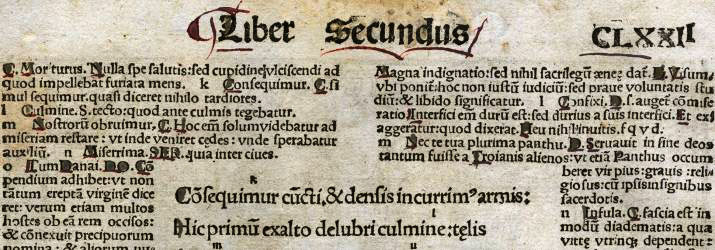 Liber Secundus
CLXXII
C. Moriturus. Nulla spe salutis: sed cupidine vlciscendi ad
quod impellebat furiata mens. k Consequimur. C. si
mul sequimur. quasi diceret nihilo tardiores.
l Culmine. S. tecto: quod ante culmis tegebatur.
m Nostrorū obruimur. C. Hoc em̄ solum videbatur ad
miseriam restare: vt inde veniret cędes: vnde sperabar
auxiliū. n Miserrima. SER. quia inter ciues.
o Tum Danai. DO. Cō
pendium adhibet: vt non
tātum ereptā virginē dice
ret: verum etiam multos
hostes ob eā rem occisos:
& cōnexuit precipuorum
nomina: & aliorum
k
Cōsequimur cūcti, & densis incurrimꝰ armis:
l
Hic primū exalto delubri culmine: tęlis
m
Magna indignatio: sed nihil sacrilegū ęneę dat. D. Visum,
vbi ponit: hoc non iustū iudiciū: sed praue voluntatis stu
diū: & libido significatur. l Confixi. D. s. auget cōmise
ratio Interfici em̄ durū est: sed durius a suis interfici. Et ex
aggeratur: quod dixerat. Heu nihil inuitis. f q v d.
m Nec te tua plurima panthu. D. Seruauit in fine deos
tantum fuisse a Troianis alienos: vt etiā Panthus occum
beret vir pius: grauis: reli
giosus: cū ipsis insignibus
sacerdotis.
n Infula. C. fascia est in
modū diadematis: a qua
vittę vtrinq; dependent: